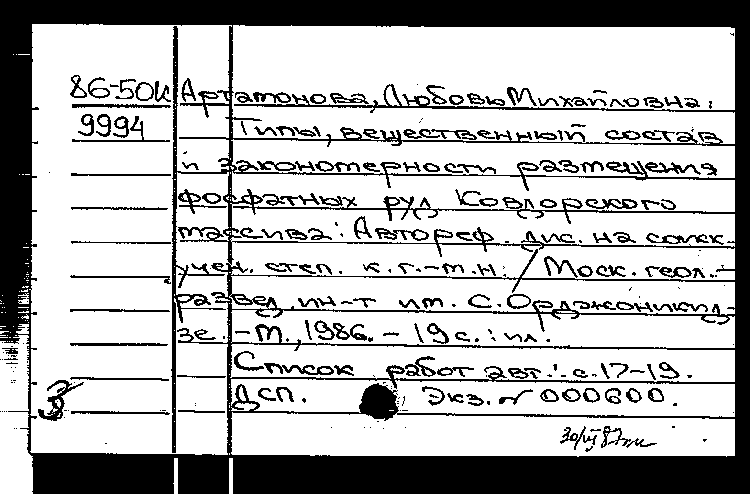 86-50к Артамонова, Любовь Михайловна.
9994 Типы, вещественный состав
и закономерности размещения
фосфатных руд Ковдорского
массива: Автореф. дис. на соиск.
учен. степ. к.г.-м.н. / Моск. геол.-
развед. ин-т им. С. Орджоникид-
зе. - М., 1986. - 19 с. : ил.
Список работ авт.: с. 17-19.
ДСП. Экз. N 000600.